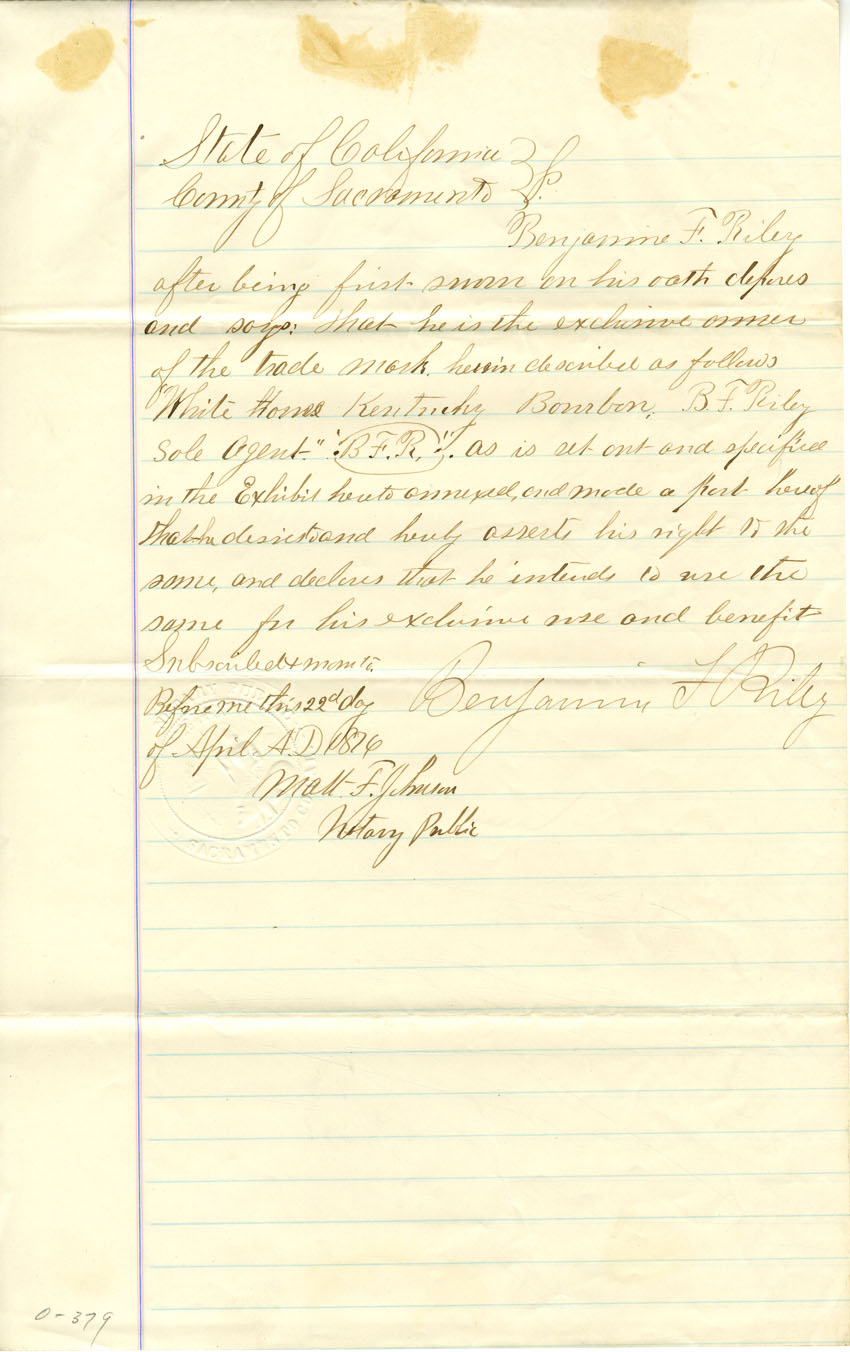 State of California }
County of Sacramento } SS.
Benjamine F. Riley
after being first sworn on his oath deposes
and says: that he is the exclusive owner
of the trade mark, herein described as follows
"White House Kentucky Bourbon, B.F. Riley
Sole Agent." "B.F.R." as is set out and specified
in the Exhibit hereto annexed, and made a part hereof
that he desires to and hereby asserts his right to the
same, and declares that he intends to use the
same for his exclusive use and benefit
Subscribed & sworn to
Before me this 22d day
Benjamin F Riley
of April A.D 1876
Matt. F. Johnson
Notary Public
0-379